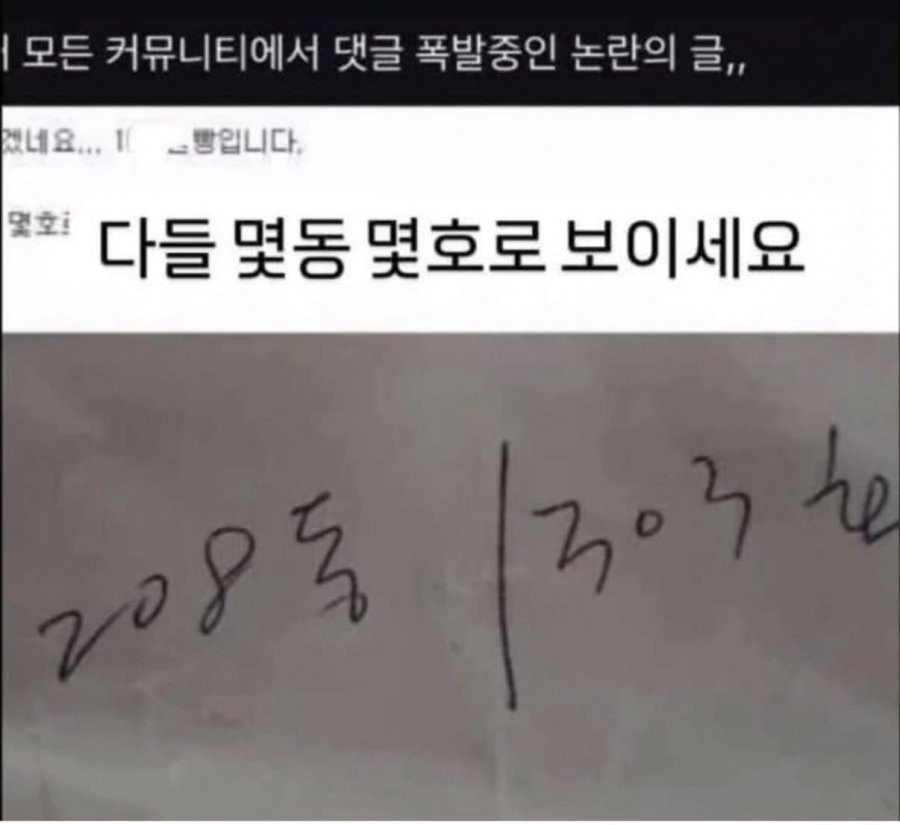 모든 커뮤니티에서 댓글 폭발중인 논란의 글,,
겠네요... 빵입니다.
몇호
다들 몇동 몇호로 보이세요
208동 1303호